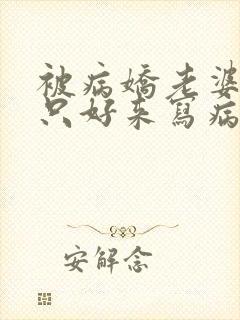 被病嬌老婆
只好來寫病
安解念